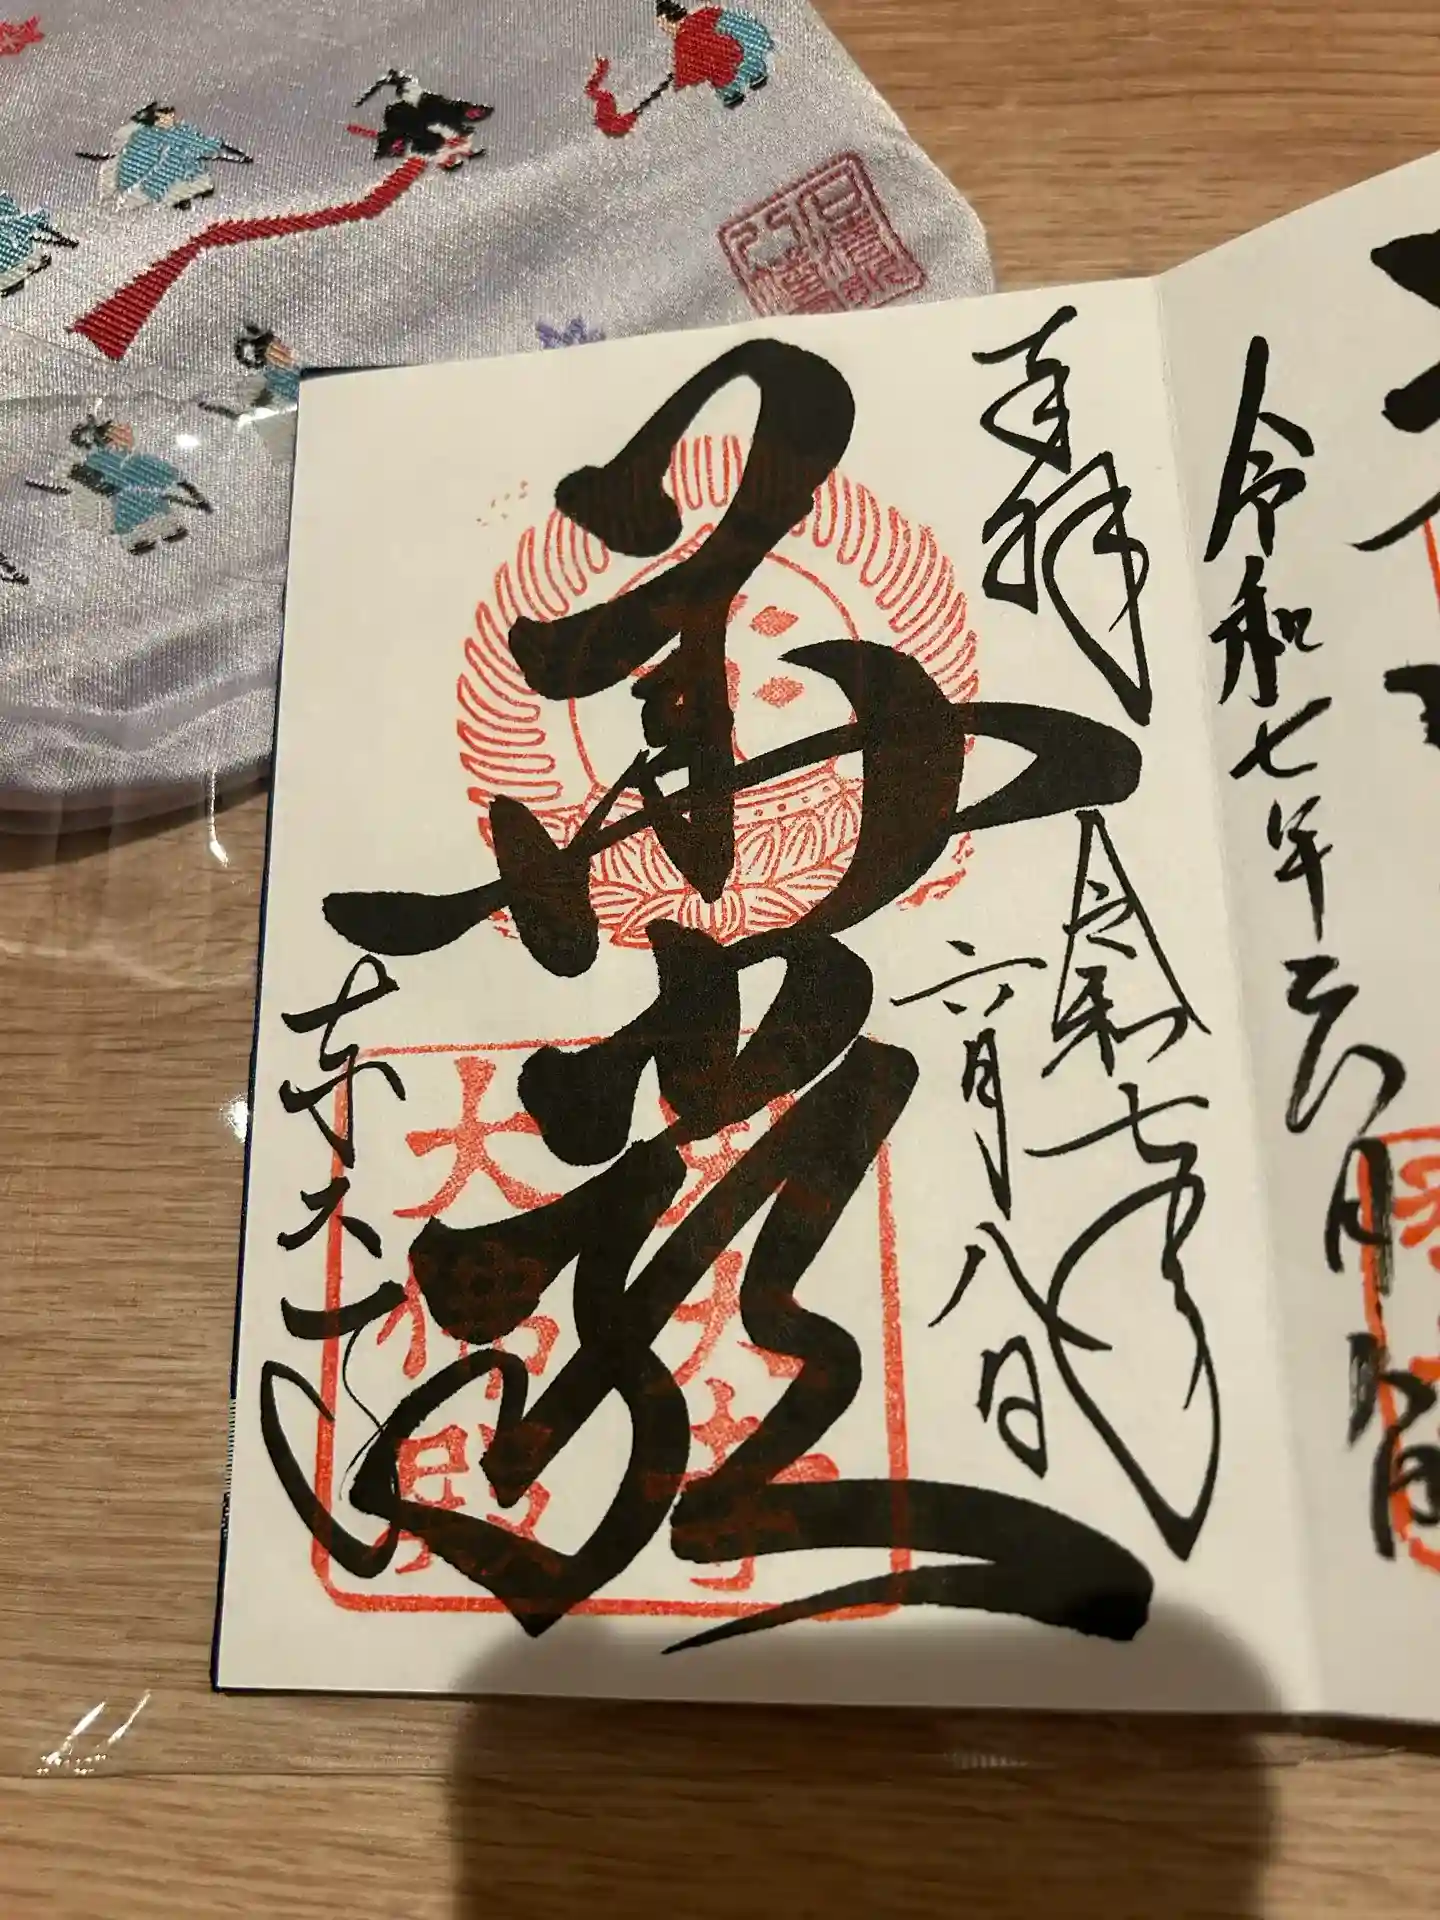 令和七年六月八日
奉拝
令和七年
六月八日
華厳
東大寺
東大寺
大佛殿